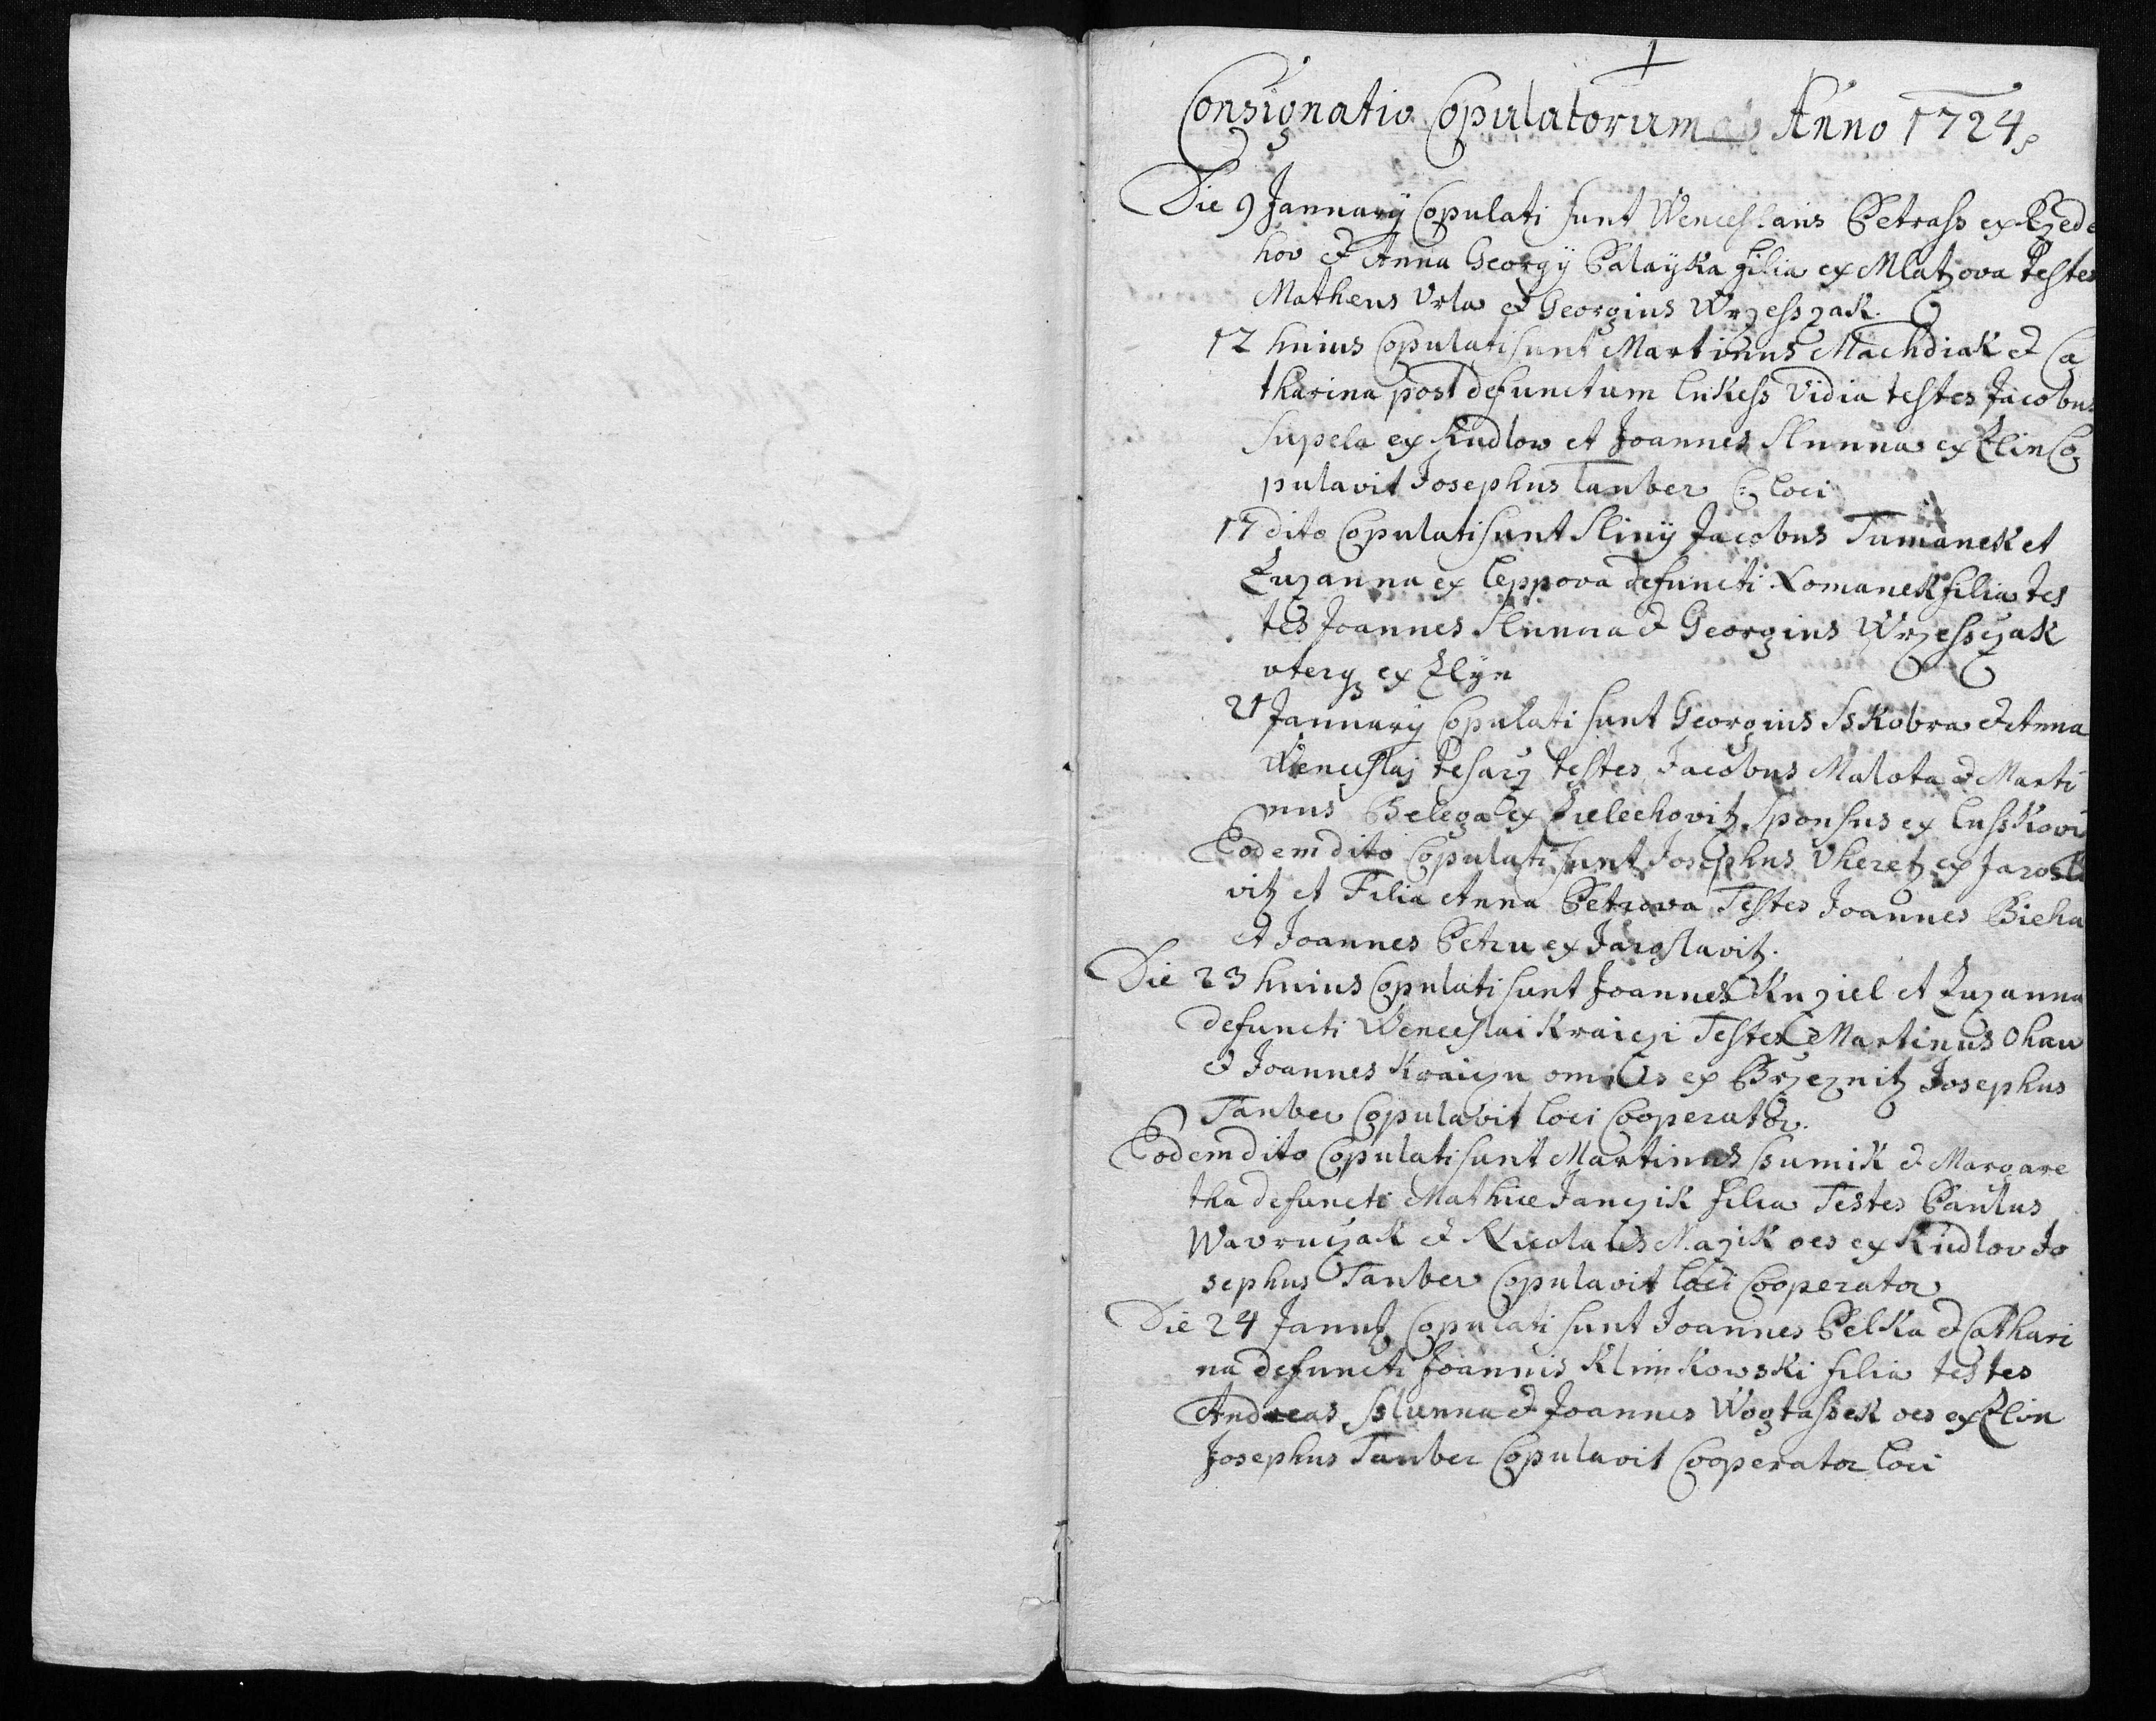 Consignatio Copulatorum ab Anno 1724
Die 9 Januarÿ Copulati sunt Wenceslaus Petrass ex Rzede
hov et Anna Georgÿ Palaÿka filia ex Mlatzova testes
Matheus Vrla et Georgius Wrzesszak.
12 huius Copulati sunt Martinus Machdiak et Ca
tharina post defunctum lukess Vidia testes Jacobus
Supela ex Kudlow et Joannes Slunna ex Zlin Co
pulavit Josephus Tauber C: loci
17 dito Copulati sunt Jacobus Tumanek et
Zuzanna ex leppova defuncti Romanek filia tes
tes Joannes Slunna et Georgius Wrzessczak
uterq ex Zlÿn
21 Januarÿ Copulati sunt Georgius Sskobra et Anna
Wenceslaj tesarz testes Jacobus Malota et Marti
nus Belega ex Zielechovitz Sponsus ex lusskovi
Eodem dito Copulati sunt Josephus Uheretz ex Jarosla
vitz et Filia Anna Petrova Testes Joannes Bieha
et Joannes Petru ex Jaroslavitz.
Die 23 huius Copulati sunt Joannes Kuziel et Zuzanna
defuncti Wenceslai Kraiczi Testes Martinus Ohau
et Joannes Kraiczu omnes ex Brzeznitz Josephus
Tauber Copulavit loci Cooperator.
Eodem dito Copulati sunt Martinus Ssumik et Margare
tha defuncti Mathiæ Janczik filia Testes Paulus
Wavruczak et Nicolaus Mazik oes ex Kudlov Jo
sephus Tauber Copulavit loci Cooperator
Die 24 Janu Copulati sunt Joannes Pelka et Cathari
na defuncti Joannis Klimkowski filia testes
Andreas Sslunna et Joannes Wogtassek oes ex Zlin
Josephus Tauber Copulavit Cooperator loci